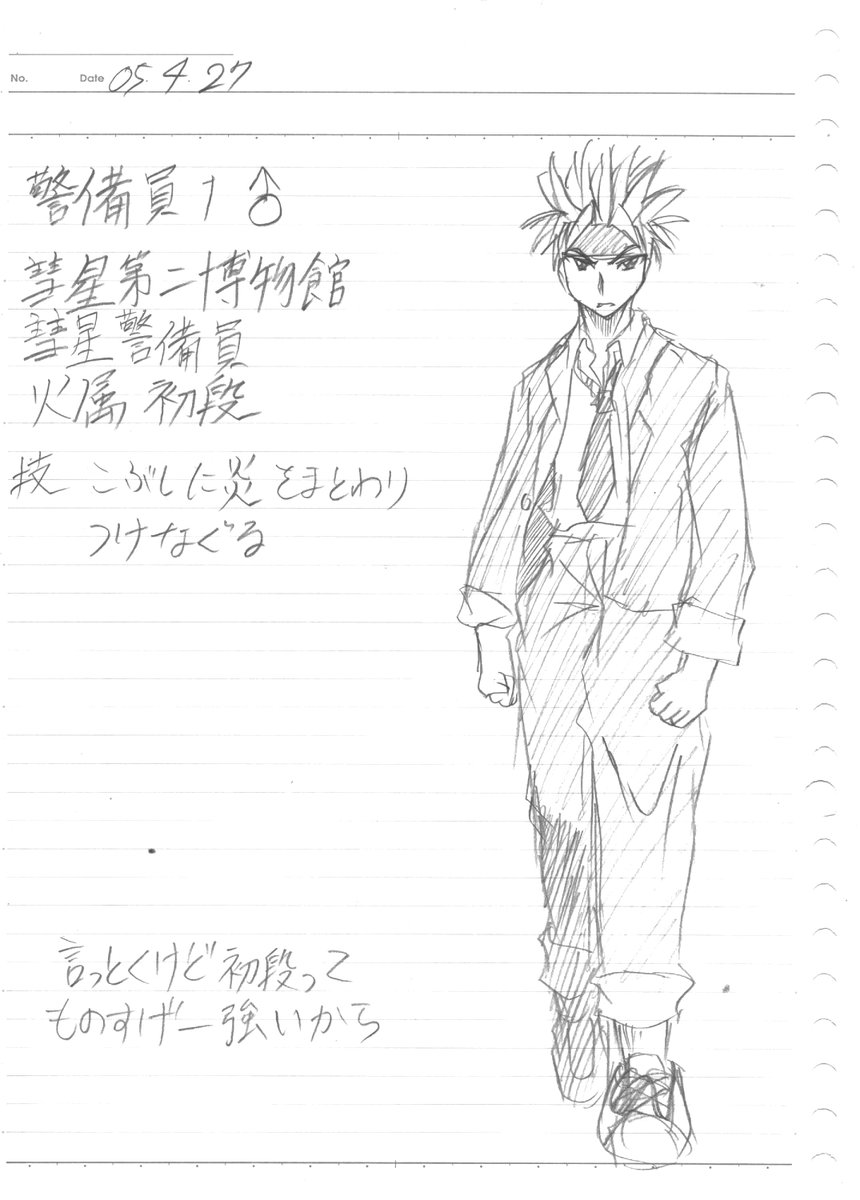 No. Date 05.4.27
警備員1♂
彗星第二博物館
彗星警備員
火属 初段
技 こぶしに炎をまとわり
つけなぐる
言っとくけど初段って
ものすげー強いから